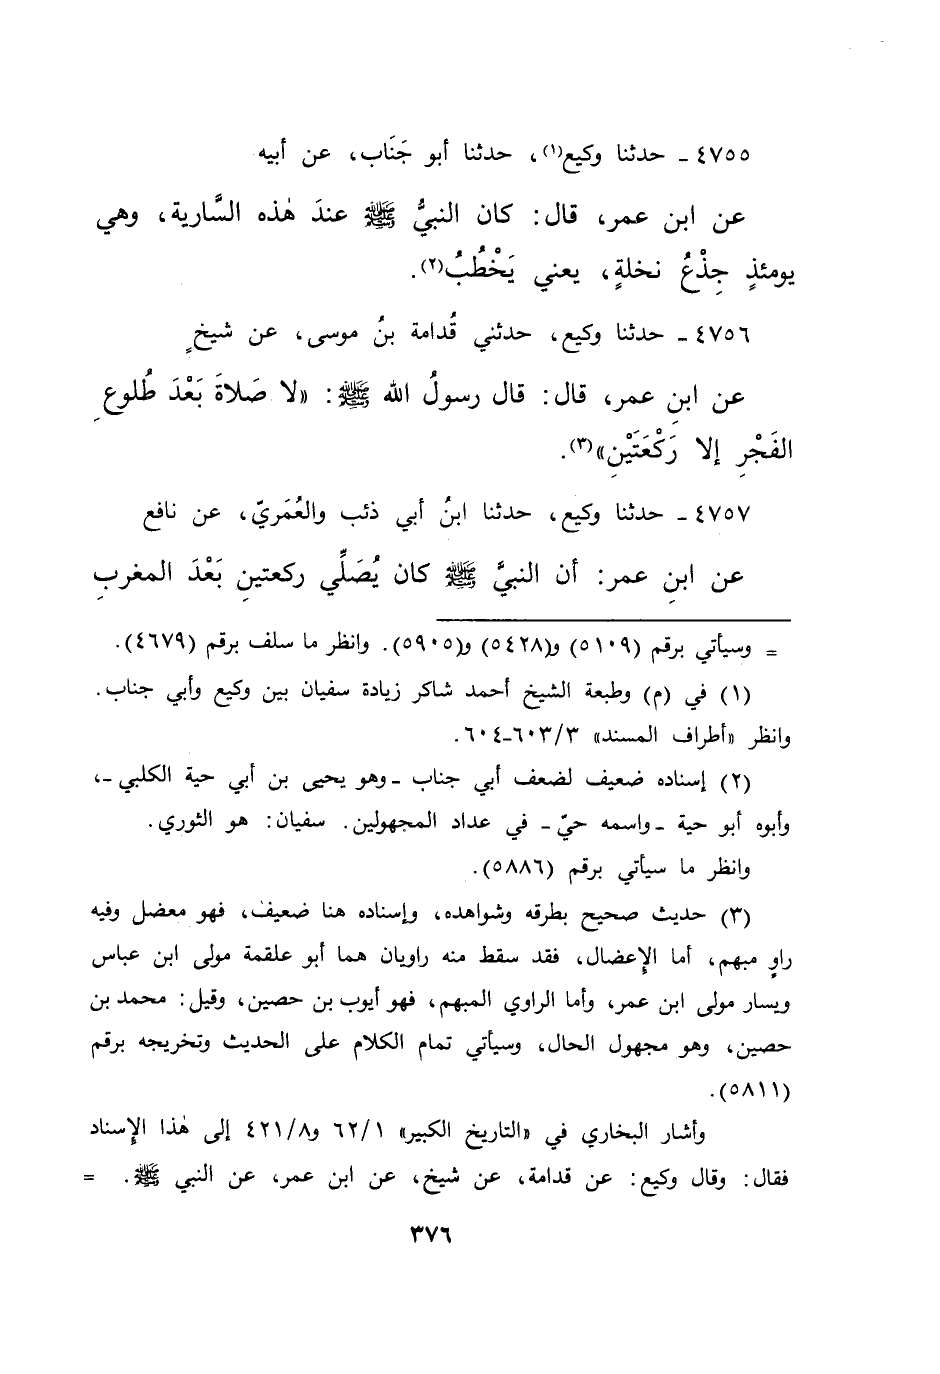 ٤٧٥٥ ـ حدثنا وكيع(١)، حدثنا أبو جَنَاب، عن أبيه
عن ابن عمر، قال: كان النبيُّ ﷺ عندَ هٰذه السَّارية، وهي
يومئذٍ جِذْعُ نخلةٍ، يعني يَخْطُبُ(٢).
٤٧٥٦ ـ حدثنا وكيع، حدثني قُدامة بنُ موسى، عن شيخٍ
عن ابنِ عمر، قال: قال رسولُ الله ﷺ: «لا صَلاةَ بَعْدَ طُلوعِ
الفَجْرِ إلا رَكْعَتَيْنِ»(٣).
٤٧٥٧ ـ حدثنا وكيع، حدثنا ابنُ أبي ذئب والعُمَريّ، عن نافع
عن ابنِ عمر: أن النبيَّ ﷺ كان يُصَلِّي ركعتينِ بَعْدَ المغربِ
= وسيأتي برقم (٥١٠٩) و(٥٤٢٨) و(٥٩٠٥). وانظر ما سلف برقم (٤٦٧٩).
(١) في (م) وطبعة الشيخ أحمد شاكر زيادة سفيان بين وكيع وأبي جناب.
وانظر «أطراف المسند» ٦٠٣/٣-٦٠٤.
(٢) إسناده ضعيف لضعف أبي جناب ـ وهو يحيى بن أبي حية الكلبي ـ،
وأبوه أبو حية ـ واسمه حيّ ـ في عداد المجهولين. سفيان: هو الثوري.
وانظر ما سيأتي برقم (٥٨٨٦).
(٣) حديث صحيح بطرقه وشواهده، وإسناده هنا ضعيف، فهو معضل وفيه
راوٍ مبهم، أما الإعضال، فقد سقط منه راويان هما أبو علقمة مولى ابن عباس
ويسار مولى ابن عمر، وأما الراوي المبهم، فهو أيوب بن حصين، وقيل: محمد بن
حصين، وهو مجهول الحال، وسيأتي تمام الكلام على الحديث وتخريجه برقم
(٥٨١١).
وأشار البخاري في «التاريخ الكبير» ٦٢/١ و٤٢١/٨ إلى هٰذا الإسناد
فقال: وقال وكيع: عن قدامة، عن شيخ، عن ابن عمر، عن النبي ﷺ. =
٣٧٦